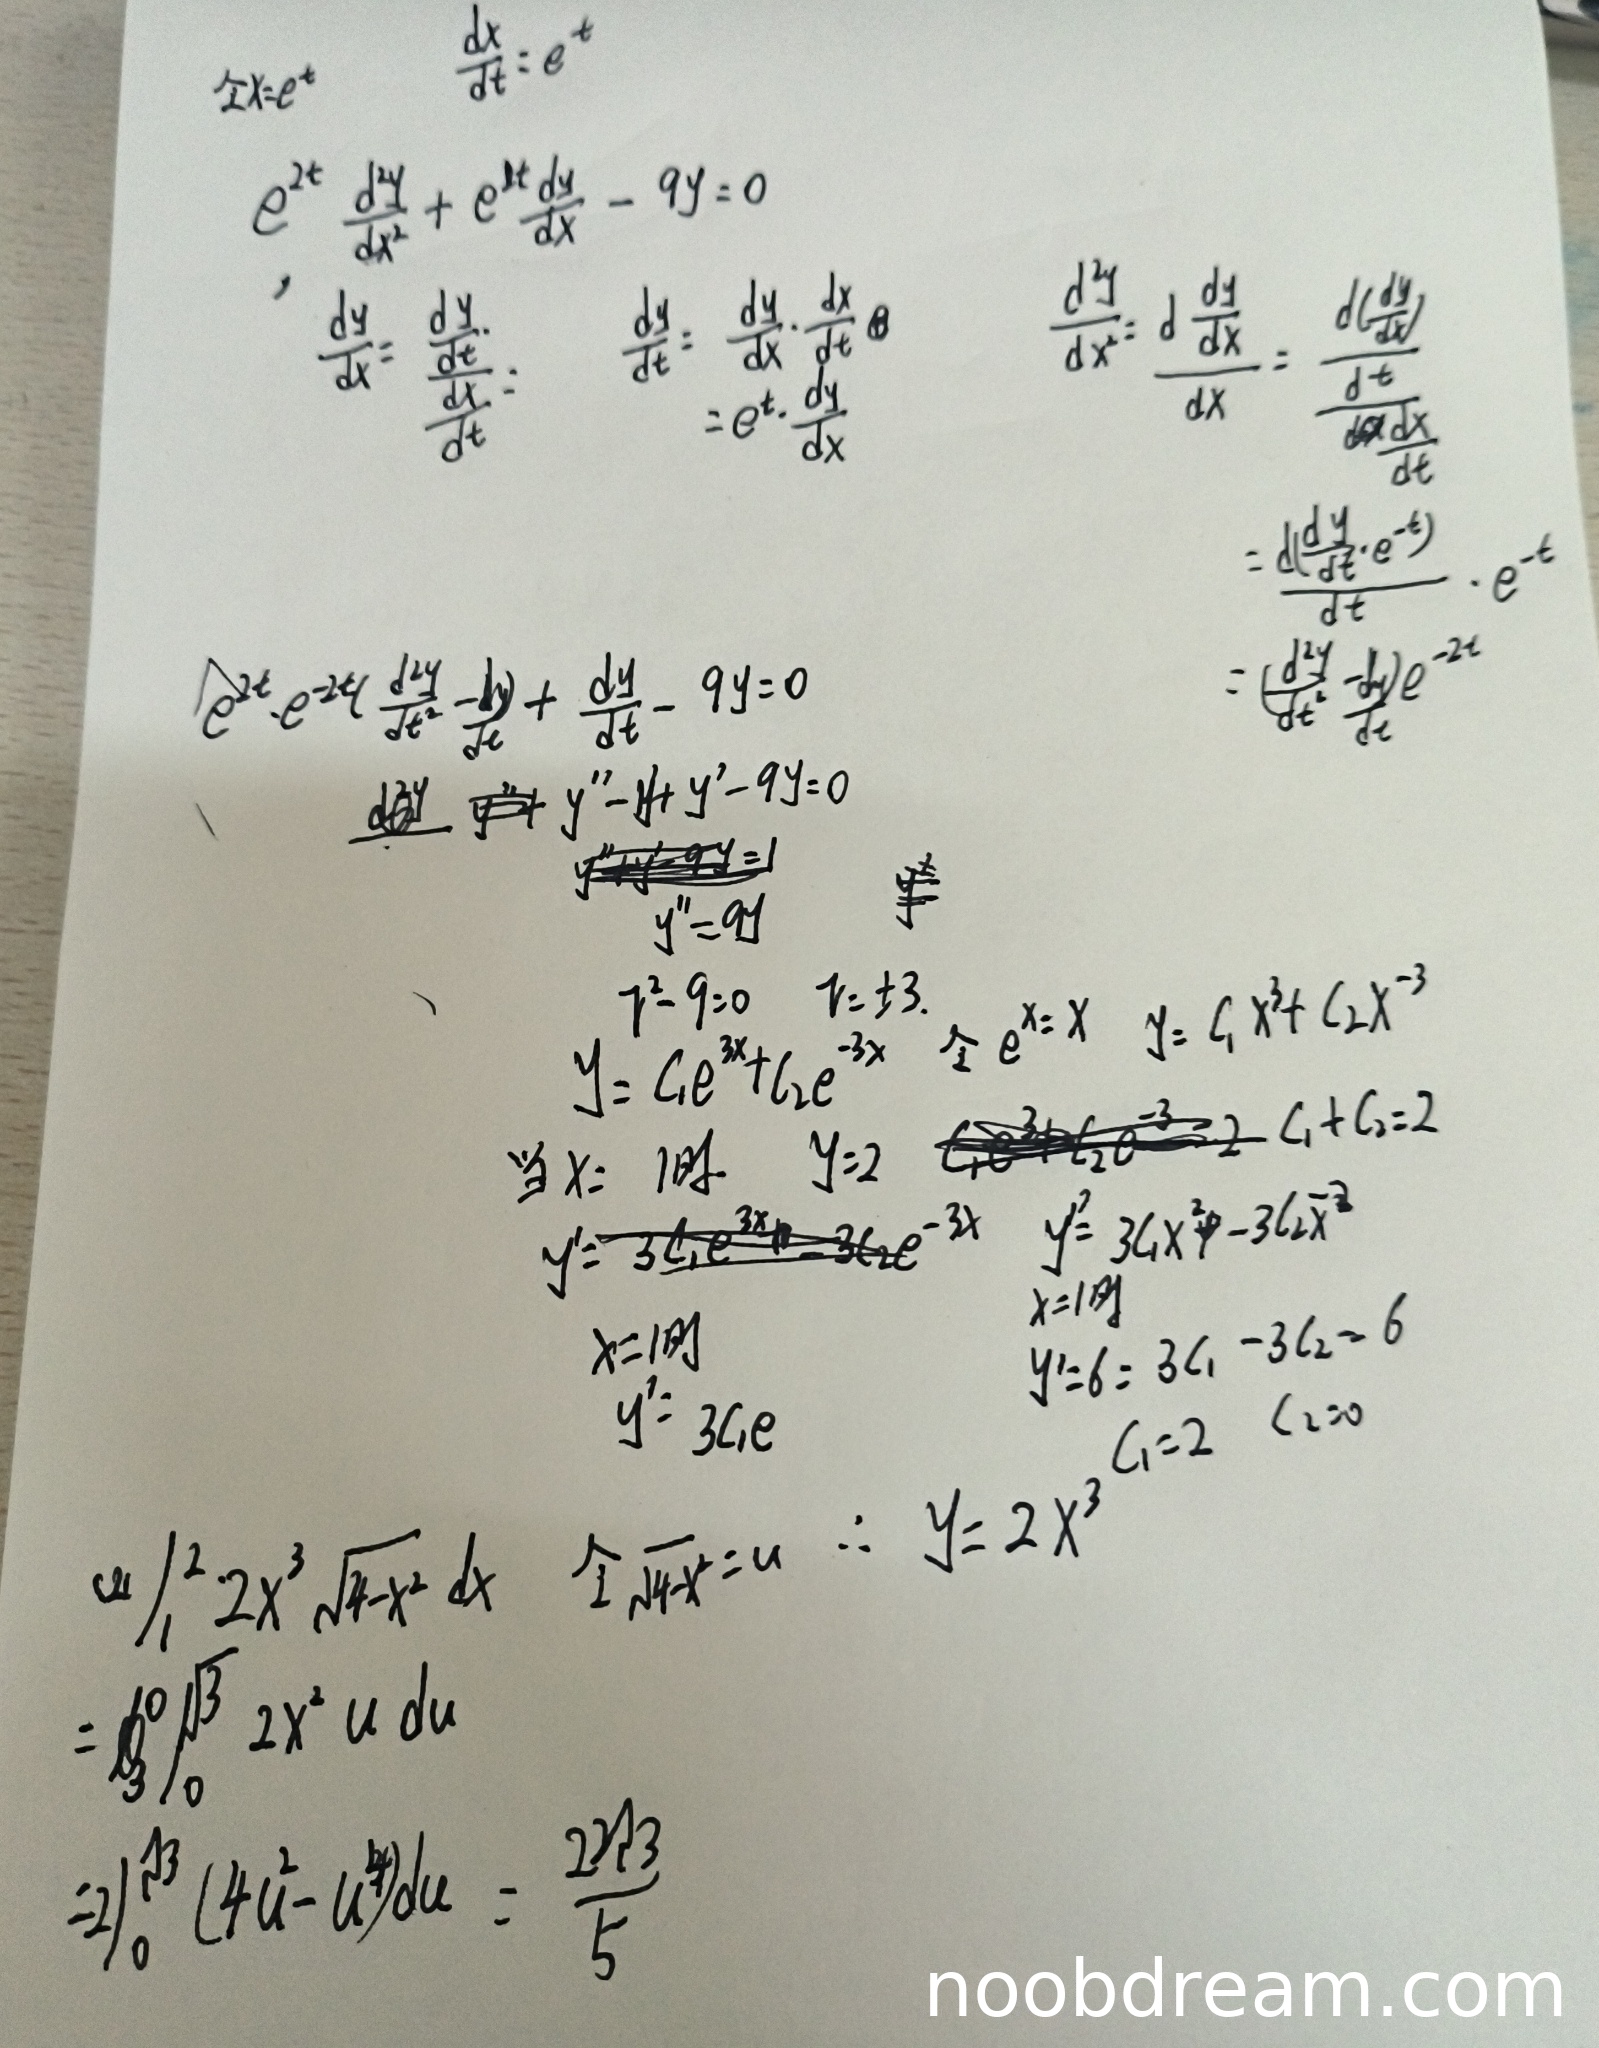 令x=e^t    dx/dt = e^t
e^{2t} d²y/dx² + e^t dy/dx - 9y = 0
dy/dx = (dy/dt)/(dx/dt) =    dy/dt = dy/dx · dx/dt    d²y/dx² = (d dy/dx)/dx = (d(dy/dx)/dt)/(dx/dt)
= e^t · dy/dx
= d(dy/dt · e^{-t})/dt · e^{-t}
= (d²y/dt² - dy/dt) e^{-2t}
e^{2t} · e^{-2t} (d²y/dt² - dy/dt) + dy/dt - 9y = 0
y'' - y' + y' - 9y = 0
y'' = 9y
r² - 9 = 0    r = ±3.
y = C₁e^{3x} + C₂e^{-3x}    令 e^x = x    y = C₁x³ + C₂x^{-3}
当 x = 1时    y = 2    C₁ + C₂ = 2
y' = 3C₁e^{3x} - 3C₂e^{-3x}    y' = 3C₁x² - 3C₂x^{-2}
x = 1时    x = 1时
y' = 3C₁e    y' = 6 = 3C₁ - 3C₂ = 6
C₁ = 2    C₂ = 0
∴ y = 2x³
(2) ∫₁² 2x³ √(4-x²) dx    令 √(4-x²) = u
= ∫₀^{√3} 2x² u du
= 2∫₀^{√3} (4u² - u⁴) du = 22√3/5
noobdream.com